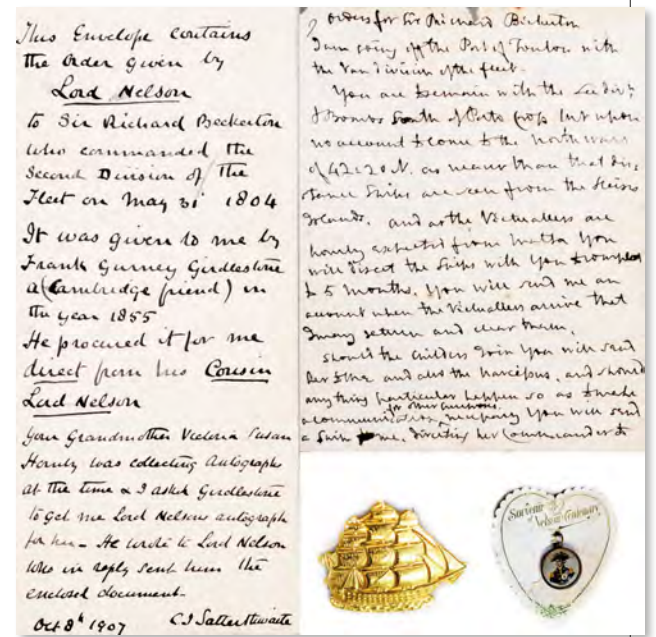 This Envelope contains
the Order given by
Lord Nelson
to Sir Richard Beckerton
who commanded the
Second Division of the
Fleet on May 31 1804
It was given to me by
Frank Gurney Girdlestone
a (Cambridge friend) in
the year 1855
He procured it for me
direct from his Cousin
Lord Nelson
your Grandmother Victoria Susan
Hornby was collecting Autographs
at the time & I asked Girdlestone
to get me Lord Nelsons autograph
for her - He wrote to Lord Nelson
who in reply sent him the
enclosed document.
Oct 8th 1907 C J Satterthwaite
Orders for Sir Richard Bickerton
I am going off the Port of Toulon with
the Van division of the fleet.
You are to remain with the Lee div
& Bombs South of Porto Cros but upon
no account to come to the northward
of 42:20 N. as nearer than that dis-
tance Ships are seen from the
Grounds. and as the Victuallers are
hourly expected from Malta You
will direct the Ships with You to complete
to 5 months. You will send me an
account when the Victuallers arrive that
I may return and clear them.
Should the Childers join You will send
her to me and also the Narcissus, and should
any thing particular happen so as to make
a communication necessary You will send
a Ship to me, directing her Commander to
Souvenir
of
Nelson Centenary